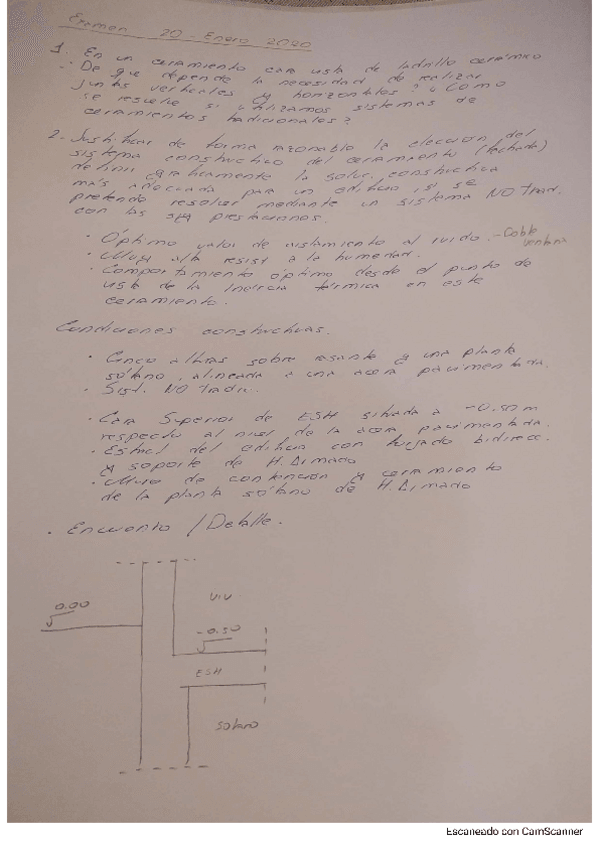 Examen 20-Enero 2020
1. En un cerramiento cara vista de ladrillo cerámico
¿De que depende la necesidad de realizar
juntas verticales y horizontales? ¿Como
se resuelve si utilizamos sistemas de
cerramientos tradicionales?
2- Justificar de forma razonable la elección del
sistema constructivo del cerramiento (fachada)
definir gráficamente la soluc. constructiva
más adecuada para un edificio si se
pretende resolver mediante un sistema NO Trad.
con las prestaciones.
· Óptimo valor de aislamiento al ruido. - Doble
ventana
· Muy alta resist a la humedad.
· Comportamiento óptimo desde el punto de
vista de la Inercia térmica en este
cerramiento.
Condiciones constructivas.
· Cinco alturas sobre rasante y una planta
sótano, alineada a una acera pavimentada.
· Sist. NO Tradi.
· Cara Superior de ESH situada a -0.50m
respecto al nivel de la acera pavimentada.
· Estruct del edificio con forjado bidirecc.
y soporte de H. Armado
· Muro de contención y cerramiento
de la planta sótano de H. Armado
· Encuentro / Detalle.
0.00
VIV
-0.50
ESH
Sótano
Escaneado con CamScanner